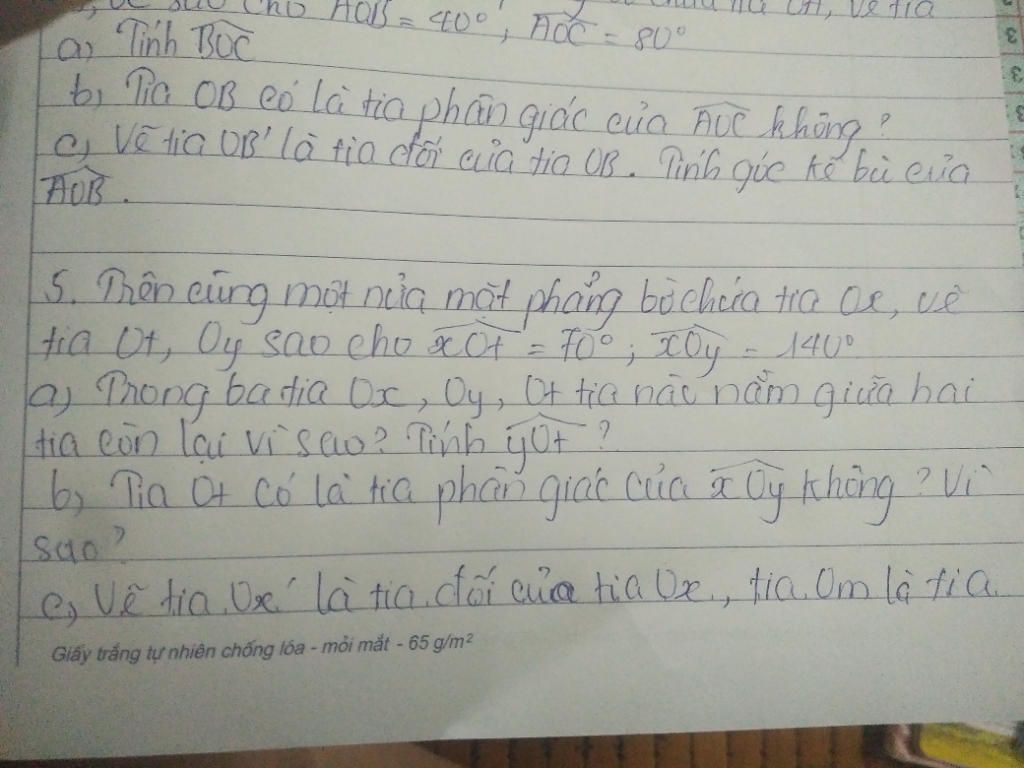 sao cho AOB = 40°, AOC = 80°
a, Tính BOC
b, Tia OB có là tia phân giác của AOC không?
c, Vẽ tia OB' là tia đối của tia OB. Tính góc kề bù của
AOB.
5. Trên cùng một nửa mặt phẳng bờ chứa tia Ox, vẽ
tia Ot, Oy sao cho xOt = 70°; xOy = 140°
a, Trong ba tia Ox, Oy, Ot tia nào nằm giữa hai
tia còn lại vì sao? Tính yOt?
b, Tia Ot có là tia phân giác của xOy không? Vì
sao?
c, Vẽ tia Ox' là tia đối của tia Ox, tia Om là tia
Giấy trắng tự nhiên chống lóa - mỏi mắt - 65 g/m²